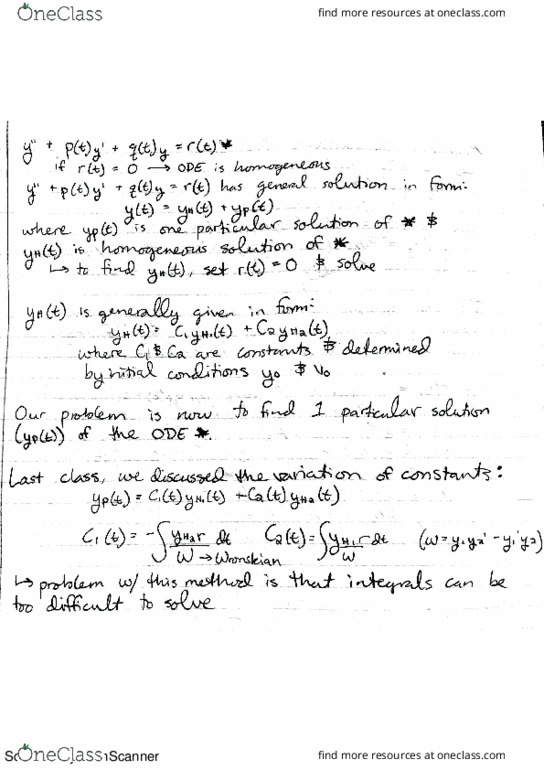 OneClass
find more resources at oneclass.com
y'' + p(t)y' + q(t)y = r(t) *
if r(t) = 0 → ODE is homogeneous
y'' + p(t)y' + q(t)y = r(t) has general solution in form:
y(t) = yH(t) + yp(t)
where yp(t) is one particular solution of * &
yH(t) is homogeneous solution of *
↳ to find yH(t), set r(t) = 0 & solve
yH(t) is generally given in form:
yH(t) = C1yH1(t) + C2yH2(t)
where C1 & C2 are constants & determined
by initial conditions y0 & v0
Our problem is now to find 1 particular solution
(yp(t)) of the ODE *.
Last class, we discussed the variation of constants:
yp(t) = C1(t)yH1(t) + C2(t)yH2(t)
C1(t) = -∫ yH2r/W dt C2(t) = ∫ yH1r/W dt (W = y1y2' - y1'y2)
→ Wronskian
↳ problem w/ this method is that integrals can be
too difficult to solve
OneClass
Scanner
find more resources at oneclass.com